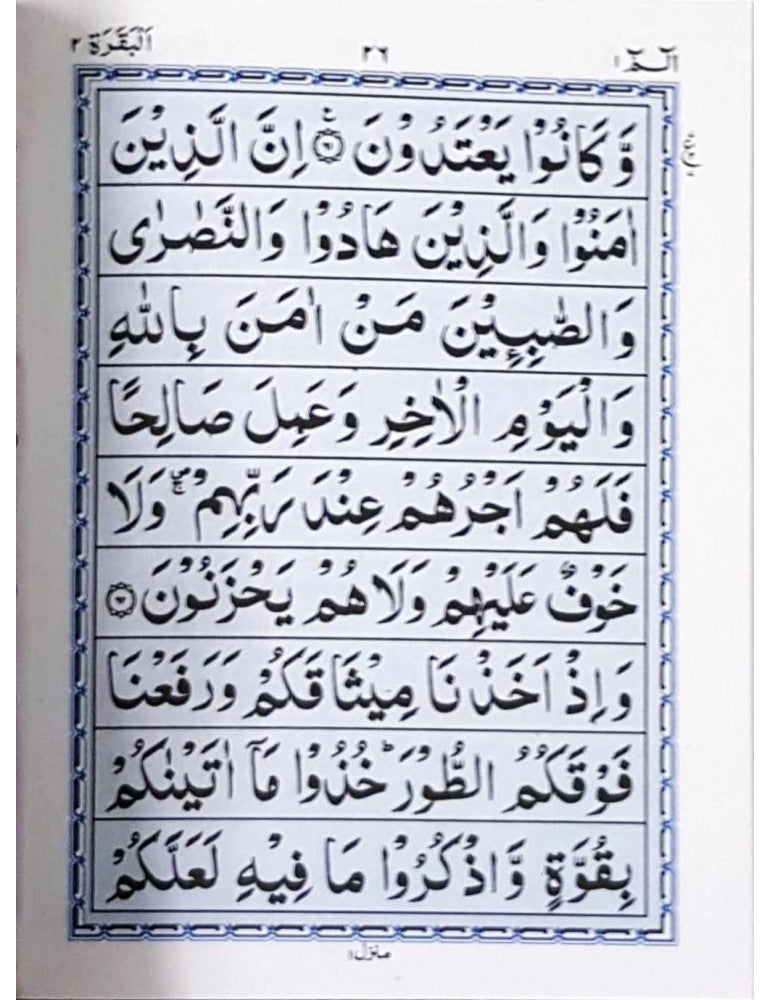 الٓمّٓ ١ ٢٦ اَلْبَقَرَة ٢
وَّكَانُوْا يَعْتَدُوْنَ ۝٦١ اِنَّ الَّذِيْنَ
اٰمَنُوْا وَالَّذِيْنَ هَادُوْا وَالنَّصٰرٰى
وَالصّٰبِـِٕيْنَ مَنْ اٰمَنَ بِاللّٰهِ
وَالْيَوْمِ الْاٰخِرِ وَعَمِلَ صَالِحًا
فَلَهُمْ اَجْرُهُمْ عِنْدَ رَبِّهِمْ ۚ وَلَا
خَوْفٌ عَلَيْهِمْ وَلَا هُمْ يَحْزَنُوْنَ ۝٦٢
وَاِذْ اَخَذْنَا مِيْثَاقَكُمْ وَرَفَعْنَا
فَوْقَكُمُ الطُّوْرَ ؕ خُذُوْا مَآ اٰتَيْنٰكُمْ
بِقُوَّةٍ وَّاذْكُرُوْا مَا فِيْهِ لَعَلَّكُمْ
منزل ١